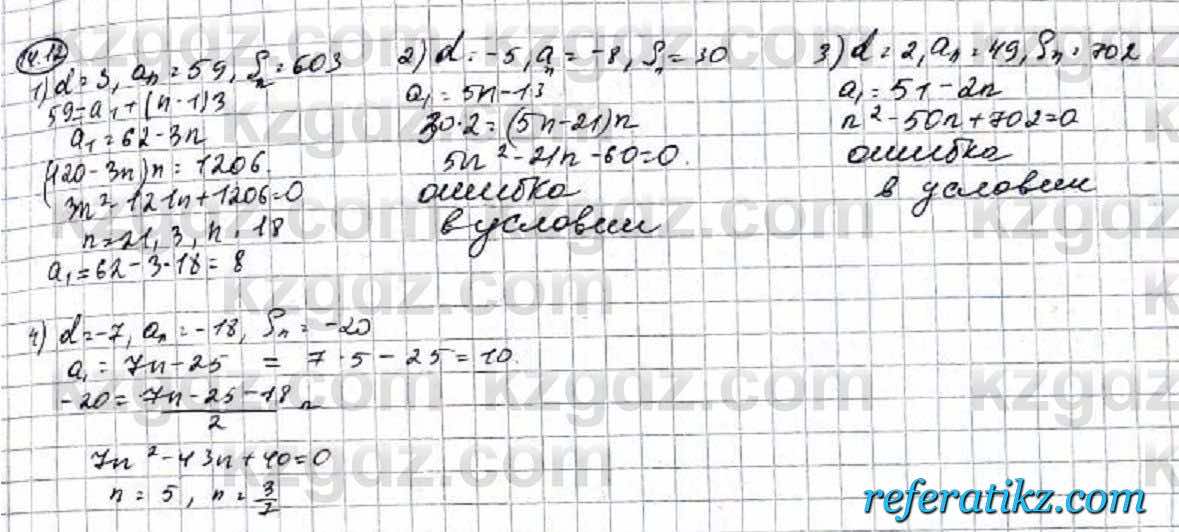 14.12
1) d = 3, aₙ = 59, Sₙ = 603
59 = a₁ + (n - 1)3
a₁ = 62 - 3n
(120 - 3n)n = 1206
3n² - 121n + 1206 = 0
n = 21,3, n = 18
a₁ = 62 - 3·18 = 8
2) d = -5, aₙ = -8, Sₙ = 30
a₁ = 5n - 13
30·2 = (5n - 21)n
5n² - 21n - 60 = 0.
ошибка
в условии
3) d = 2, aₙ = 49, Sₙ = 702
a₁ = 51 - 2n
n² - 50n + 702 = 0
ошибка
в условии
4) d = -7, aₙ = -18, Sₙ = -20
a₁ = 7n - 25 = 7·5 - 25 = 10.
-20 = (7n - 25 - 18)/2 n
7n² - 43n + 40 = 0
n = 5, n = 3/7
kzgdz.com
referatikz.com